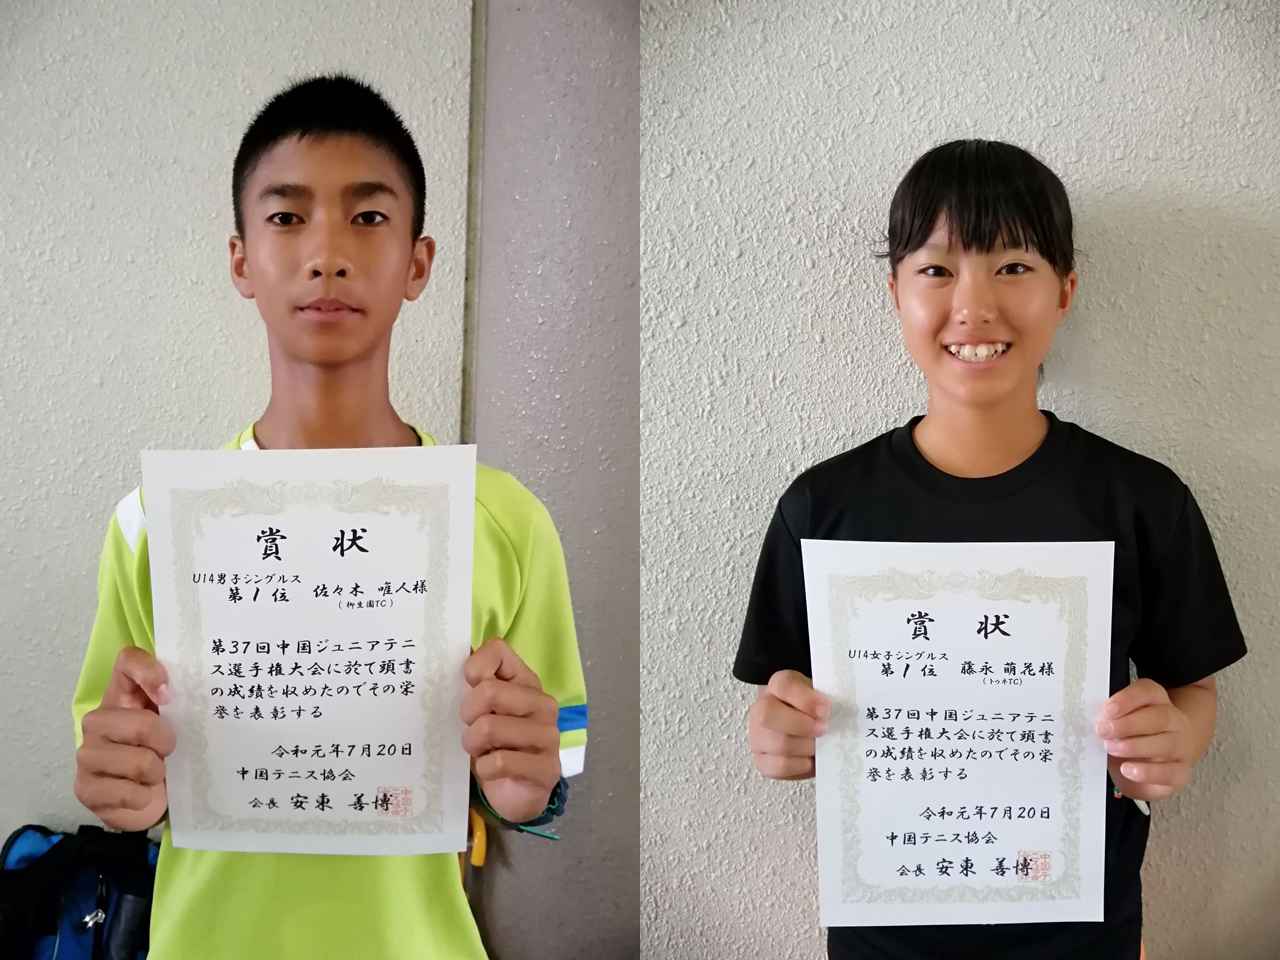 賞 状
U14男子シングルス
第1位 佐々木 唯人様
(柳生園TC)
第37回中国ジュニアテニ
ス選手権大会に於て頭書
の成績を収めたのでその栄
誉を表彰する
令和元年7月20日
中国テニス協会
会長 安東 善博
賞 状
U14女子シングルス
第1位 藤永 萌花様
(トゥネTC)
第37回中国ジュニアテニ
ス選手権大会に於て頭書
の成績を収めたのでその栄
誉を表彰する
令和元年7月20日
中国テニス協会
会長 安東 善博